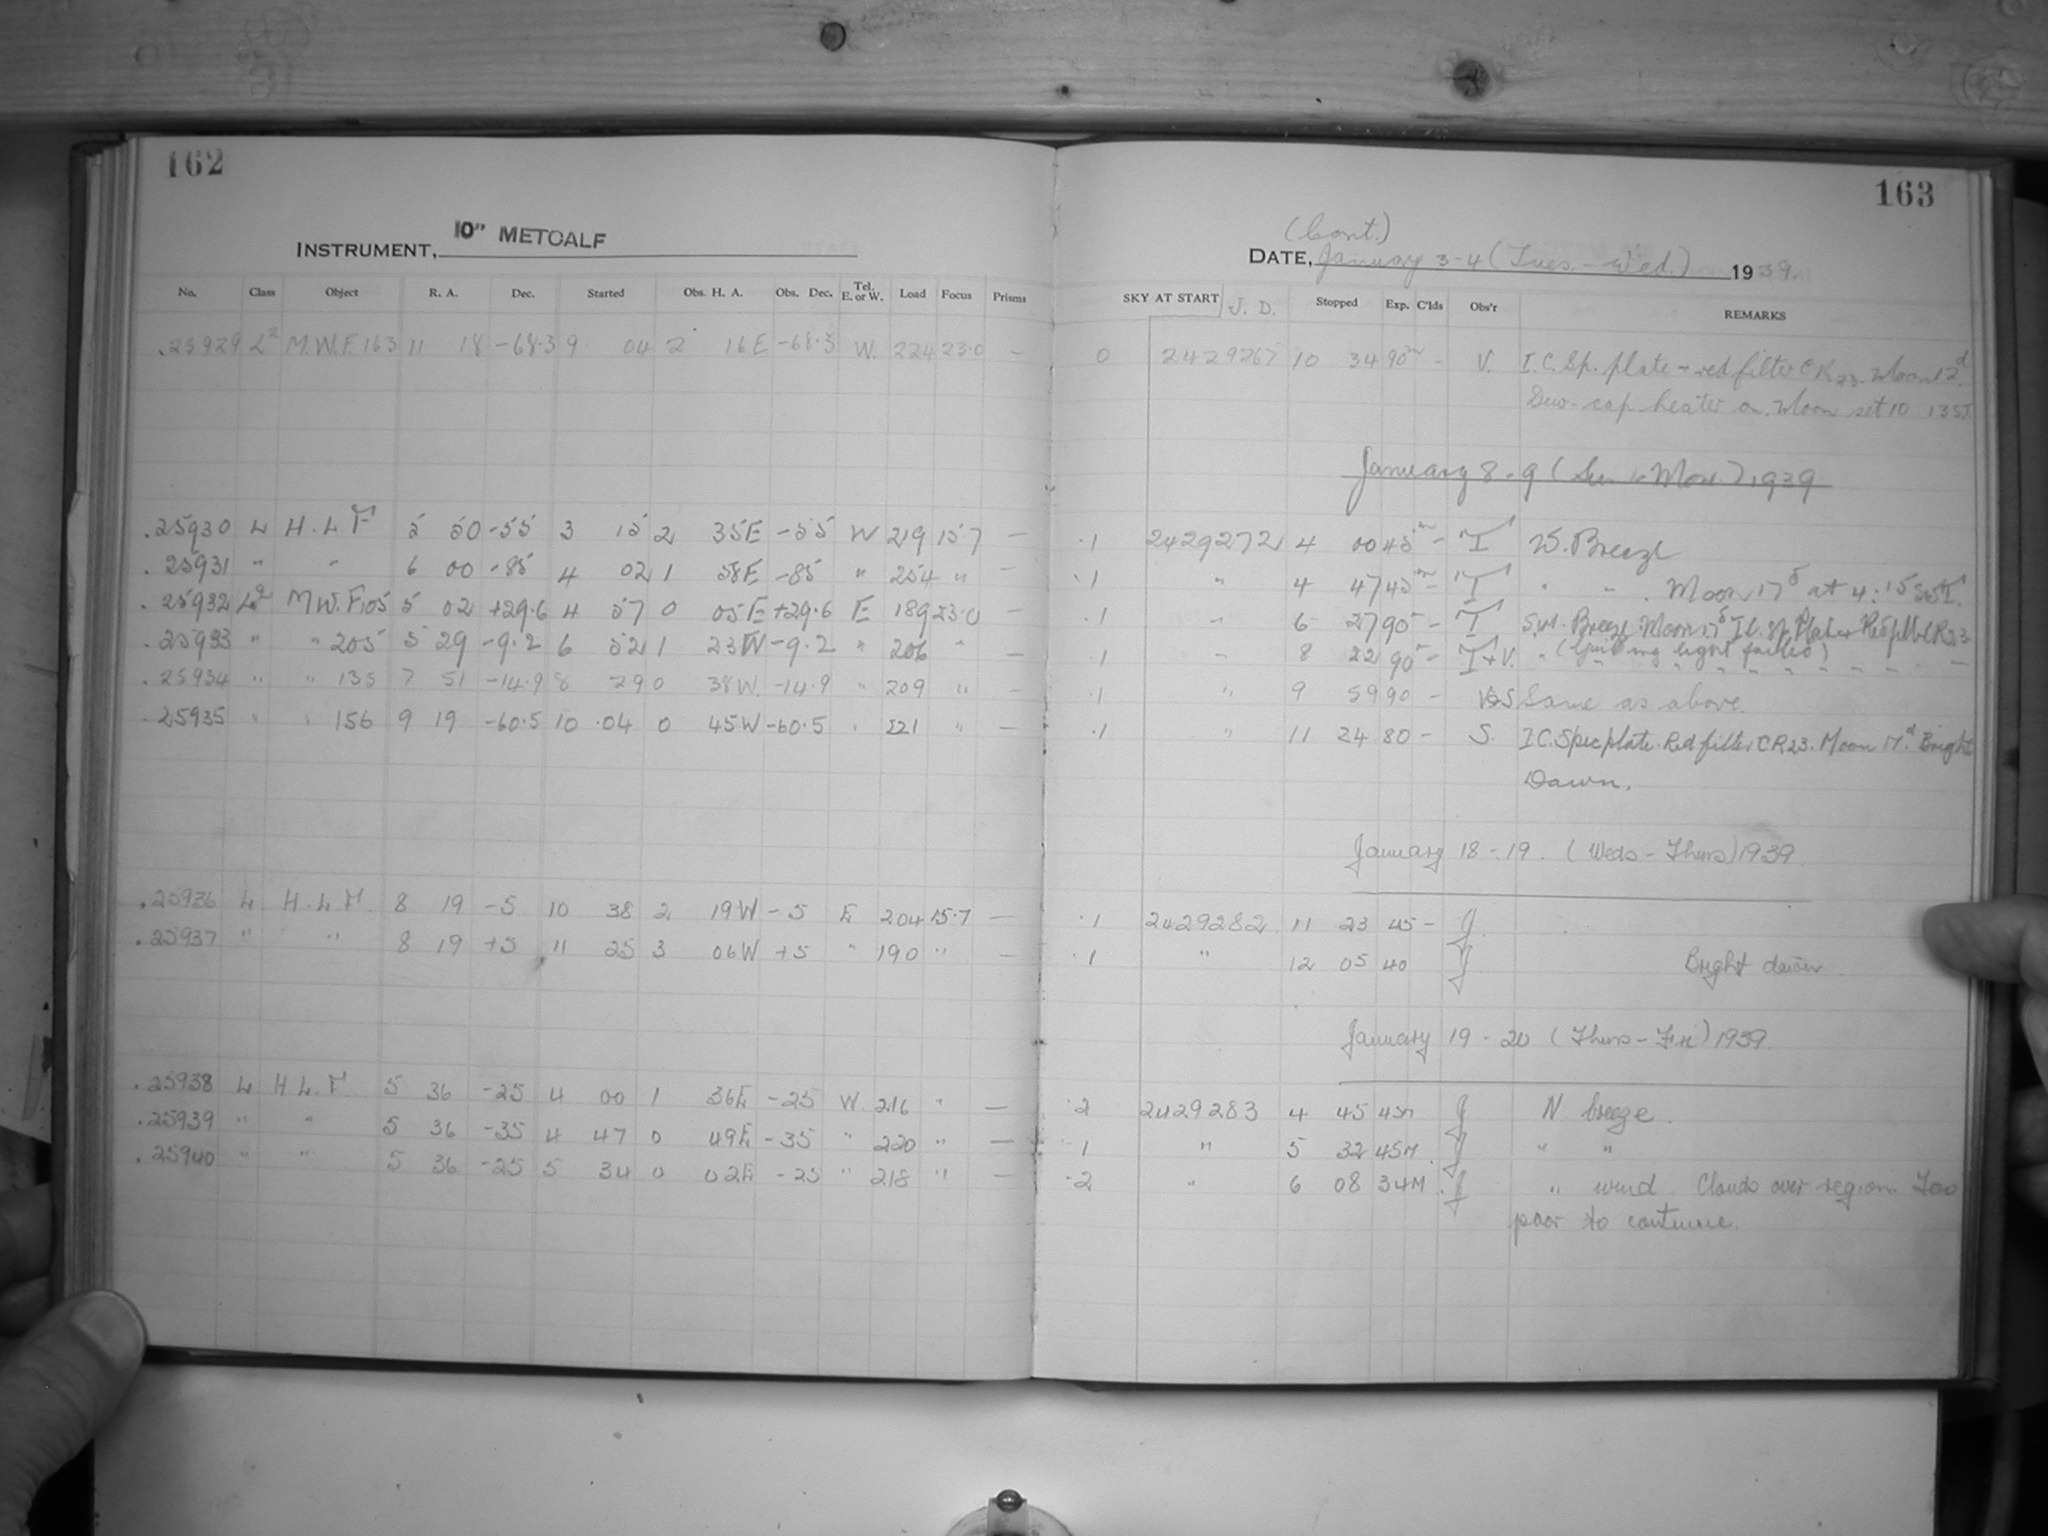 162
163
INSTRUMENT, 10" METCALF
(Cont.)
DATE, January 3-4 (Tues. - Wed.) 1939.
No. Class Object R. A. Dec. Started Obs. H. A. Obs. Dec. Tel. E. or W. Load Focus Prisms SKY AT START J. D. Stopped Exp. C'lds Obs'r REMARKS
.25929 L² M.W.F. 163 11 18 -68.3 9 04 2 16E -68.3 W. 224 23.0 — 0 2429267 10 34 90m - V. I.C. Sp. plate + red filter CR23. Moon 12d.
Dew-cap heater on. Moon set 10 13 ST.
January 8-9 (Sun - Mon.) 1939
.25930 L H.L.F 5 50 -55 3 15 2 35E -55 W 219 15.7 — .1 2429272 4 00 45m - T W. Breeze
.25931 " " 6 00 -85 4 02 1 58E -85 " 254 " — .1 " 4 47 45m - T " " Moon 17d at 4:15 ST.
.25932 L² M.W.F. 105 5 02 +29.6 4 57 0 05E +29.6 E 189 23.0 — .1 " 6 27 90 - T S.W. Breeze Moon 17d I.C. Sp. Plate + Red filt CR23
.25933 " " 205 5 29 -9.2 6 52 1 23W -9.2 " 206 " — .1 " 8 22 90 - T+V. " (Guiding light failed) " " " " " "
.25934 " " 135 7 51 -14.9 8 29 0 38W. -14.9 " 209 " — .1 " 9 59 90 - V+S Same as above.
.25935 " " 156 9 19 -60.5 10 04 0 45W -60.5 " 221 " — .1 " 11 24 80 - S. I.C. Spec plate. Red filter CR23. Moon 17d. Bright
Dawn.
January 18-19. (Weds - Thurs) 1939
.25936 L H.L.F. 8 19 -5 10 38 2 19W -5 E 204 15.7 — .1 2429282 11 23 45 - J.
.25937 " " 8 19 +5 11 25 3 06W +5 " 190 " — .1 " 12 05 40 J Bright dawn
January 19-20 (Thurs - Fri) 1939.
.25938 L H.L.F. 5 36 -25 4 00 1 36E -25 W. 216 " — .2 2429283 4 45 45M J N breeze.
.25939 " " 5 36 -35 4 47 0 49E -35 " 220 " — 1 " 5 32 45M J " "
.25940 " " 5 36 -25 5 34 0 02E -25 " 218 " — .2 " 6 08 34M J " wind. Clouds over region. Too
poor to continue.